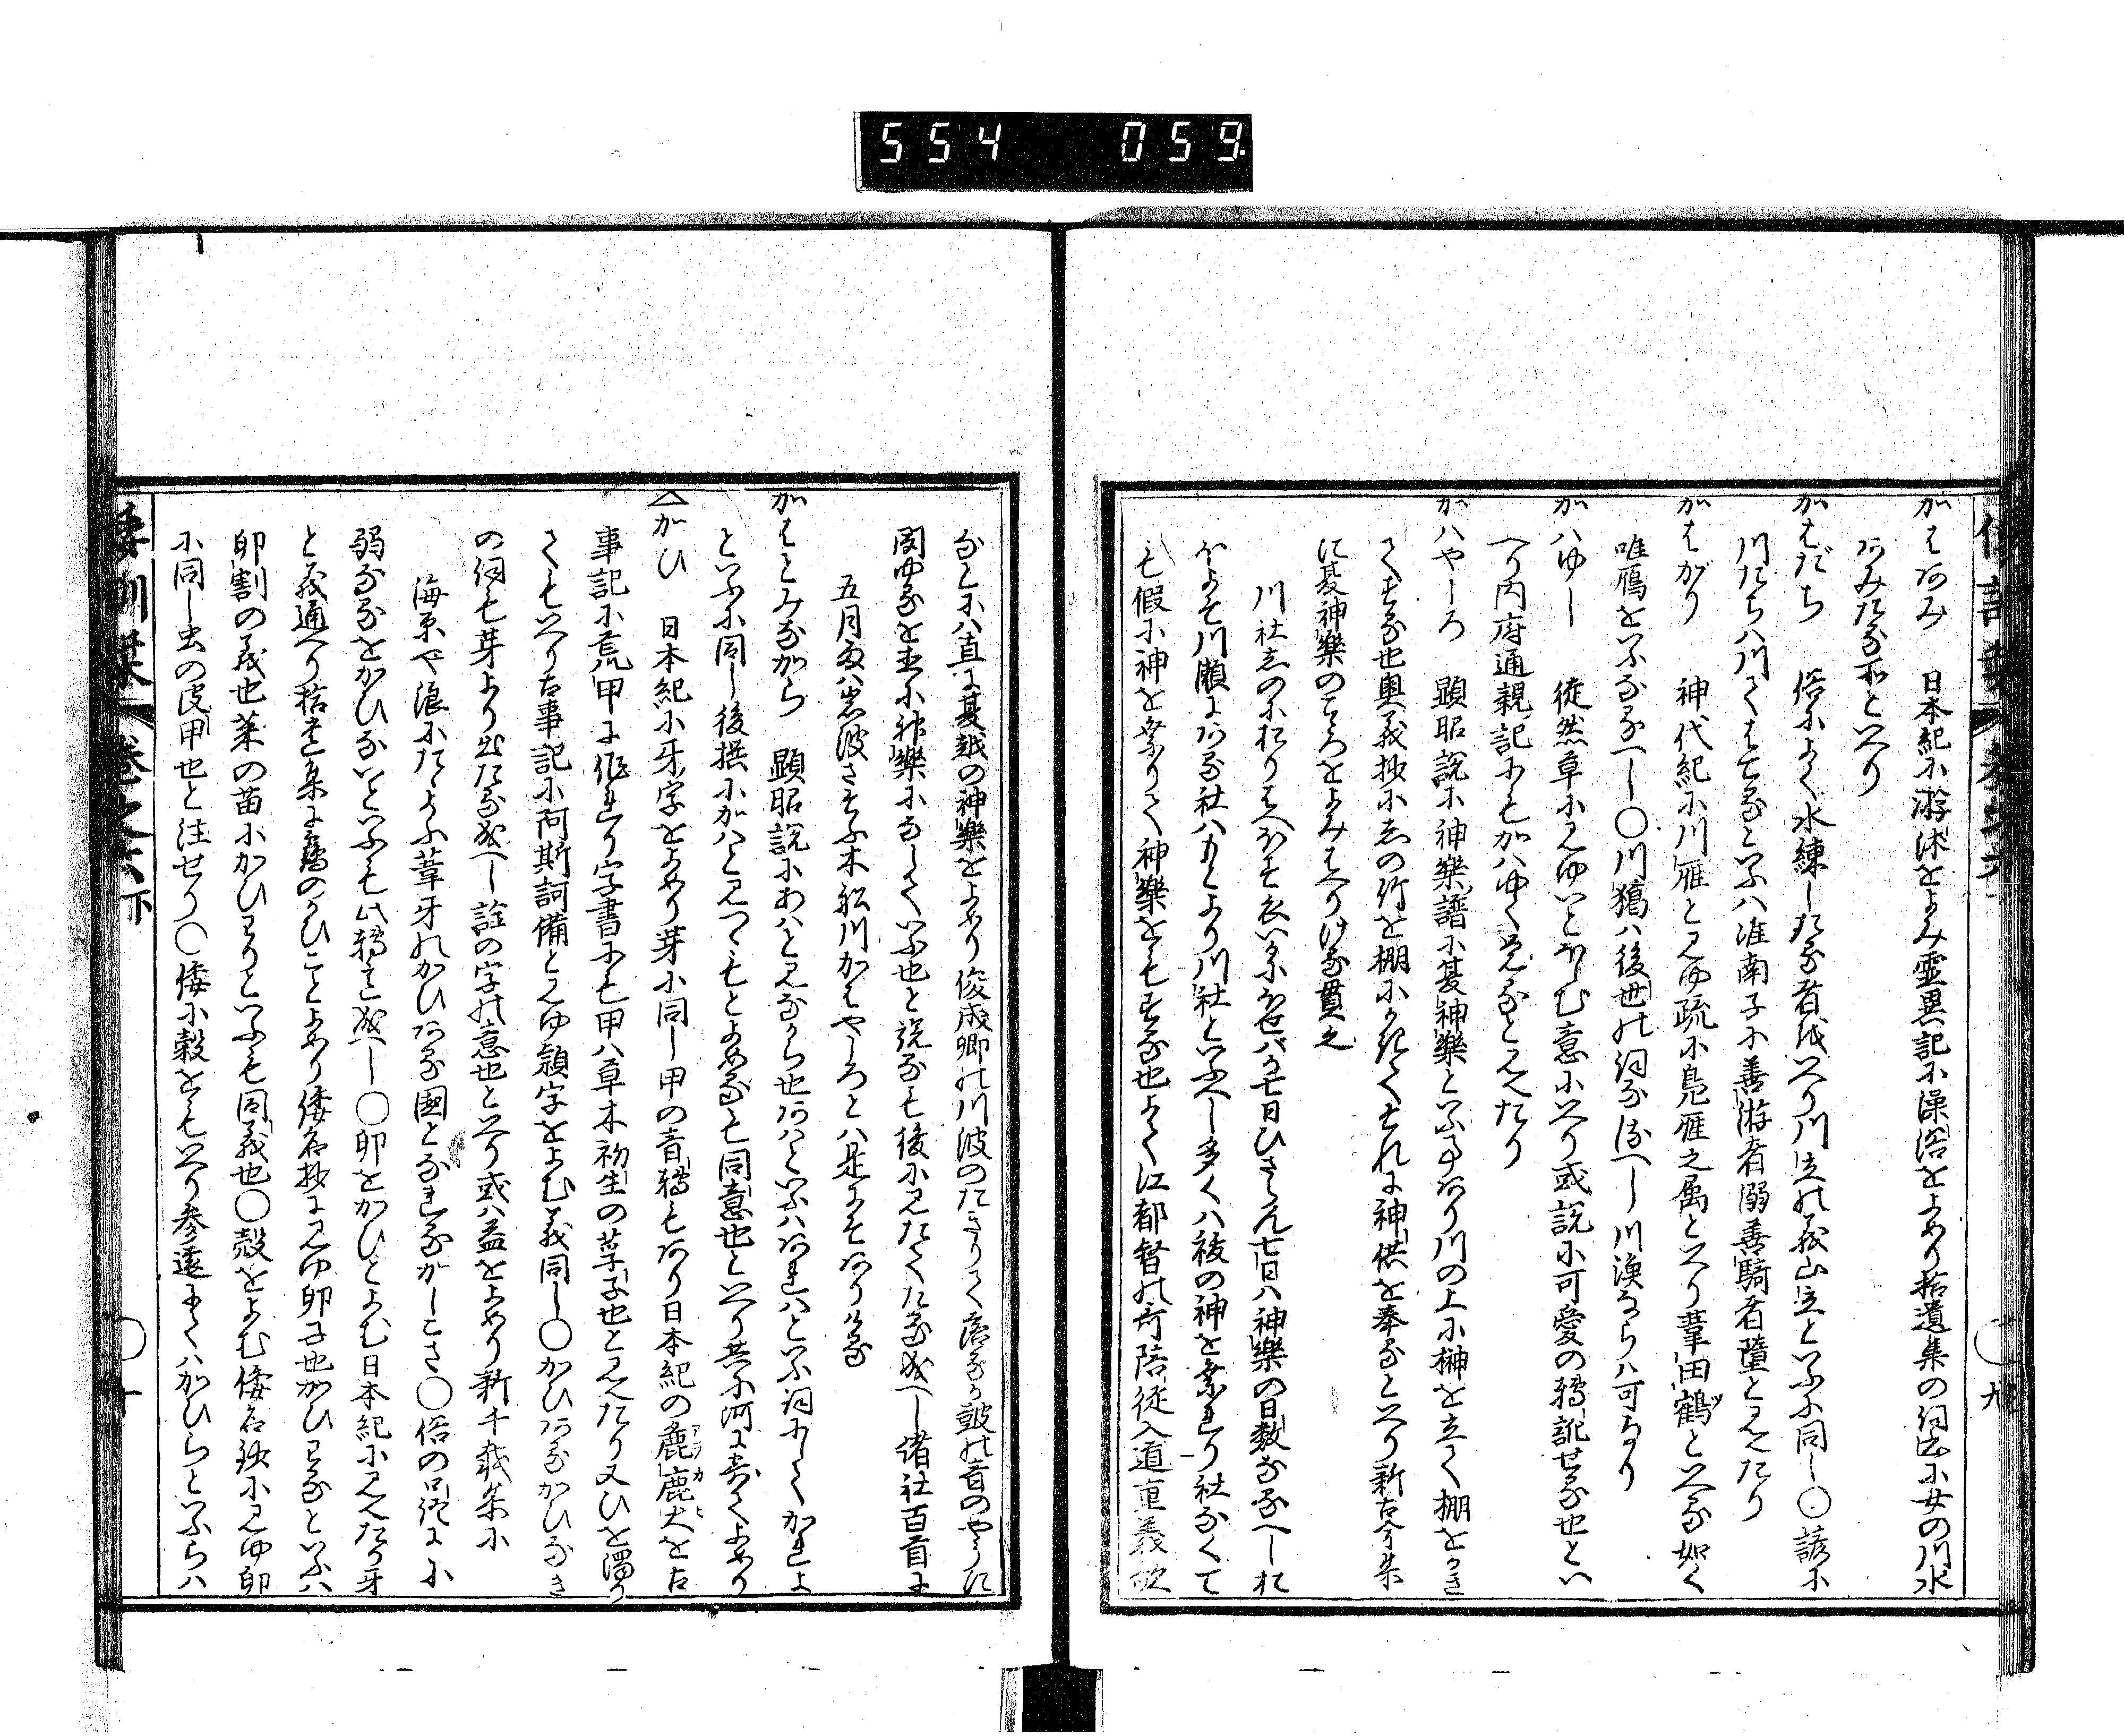 554 059
かはあみ 日本紀に游沐をよみ霊異記に澡浴をよめり拾遺集の詞書に女の川水
あみたる所といへり
かはだち 俗によく水練したる者をいへり川立の義山立といふに同し〇諺に
川たちハ川てはてるといふハ淮南子に善游者溺善騎者墮と見えたり
かはがり 神代紀に川雁と見ゆ疏に鳧雁之属といへり葦田鶴といへる如く
唯雁をいふなるへし〇川獵ハ後世の詞なるへし川漁ならハ可なり
かハゆし 徒然草に見ゆいとほしむ意にいへり或説に可愛の轉訛せる也とい
へり内府通親記にもかハゆく覚ると見えたり
かハやしろ 顕昭説に神樂譜に夏神樂といふ事あり川の上に榊を立て棚をかき
てする也奥義抄にしの竹を棚にかきてそれに神供を奉るといへり新古今集
に夏神樂のこゝろをよみはへりける貫之
川社しのにおりはへほす衣いかにほせはか七日ひさらん七日ハ神樂の日数なるへしお
ほよそ川瀬にある社ハもとより川社といふへし多くハ祓の神を祭れり社なくて
も假に神を祭りて神樂をもする也よて江都督の哥陪従入道重義歌
なとにハ直に夏越の神樂をよめり俊成卿の川波のたきりて落るか皷の音のやうに
聞ゆるを並に神樂になしていふ也と説るも後に見たてたる成へし諸社百首に
五月雨ハ岩波さそふ木船川かはやしろとハ是にそありける
かはとみなから 顕昭説にあハと見なから也あハといふハあれハといふ詞にてかれよ
といふに同し後撰にかハと見つゝもとよめるも同意也といへり共に河によせてよめり
△かひ 日本紀に牙字をよめり芽に同し甲の音轉もあり日本紀の麁鹿火を古
事記に荒甲に作れり字書にも甲ハ草木初生の莩子也と見えたり又ひを濁り
てもいへり古事記に阿斯訶備と見ゆ頴字をよむ義同し〇かひあるかひなき
の詞も芽より出たる成へし詮の字の意也といへり或ハ益をよめり新千載集に
海原や浪にたゝよふ葦牙のかひある國となれるかしこさ〇俗の品隲に小
弱なるをかひないといふも此轉言成へし〇卵をかひとよむ日本紀に見えたり牙
と義通へり拾遺集に鶴のかひことよめり倭名抄に見ゆ卵子也かひわるといふハ
卵割の義也菜の苗にかひわりといふも同義也〇殻をよむ倭名鈔に見ゆ卵
に同し虫の皮甲也と注せり〇倭に穀をもいへり参遠にてハかひらといふらハ
倭訓栞 巻之六下